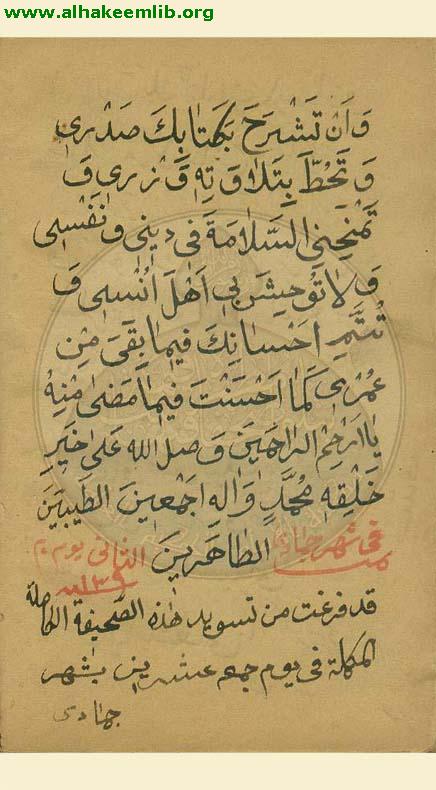 www.alhakeemlib.org
وَاَنْ تَشْرَحَ بِكِتٰابِكَ صَدْرِى
وَتَحُطَّ بِتِلٰاوَتِهِ وِزْرِى وَ
تَمْنَحَنِى السَّلٰامَةَ فى دِينِى وَنَفْسِى
وَلٰا تُوحِشَ بِى اَهْلَ اُنْسِى وَ
تُتَمِّمَ اِحْسٰانَكَ فِيمٰا بَقِىَ مِنْ
عُمْرِى كَمٰا اَحْسَنْتَ فِيمٰا مَضىٰ مِنْهُ
يٰا اَرْحَمَ الرّٰاحِمينَ وَصَلَ اللّه عَلىٰ خَيْرِ
خَلْقِهِ مُحَمَّدٍ وَاٰلِهِ اَجْمَعينَ الطَيِّبينَ
الطٰاهِرينَ فى شهر جمادى الثانى يوم
قد فرغت من تسويد هٰذه الصّحيفة الكاملة
المكملة فى يوم جمعه عشرين بشهر
جمادى